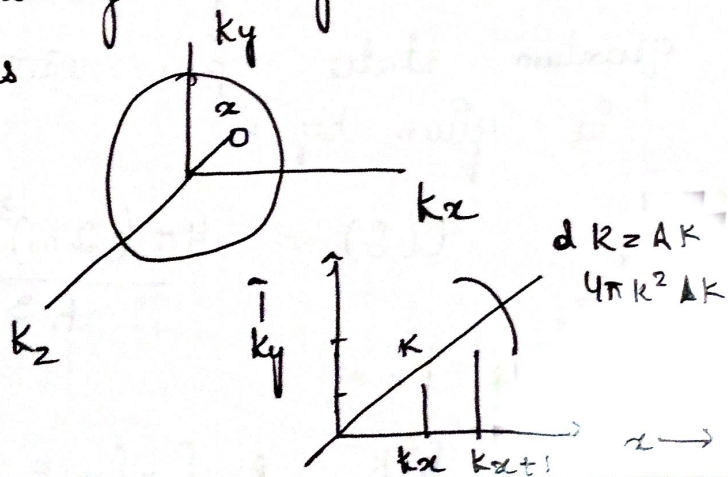 ky
s
x
kx
kz
d k = Δk
4πk² Δk
ky
K
kx kx+1
x →